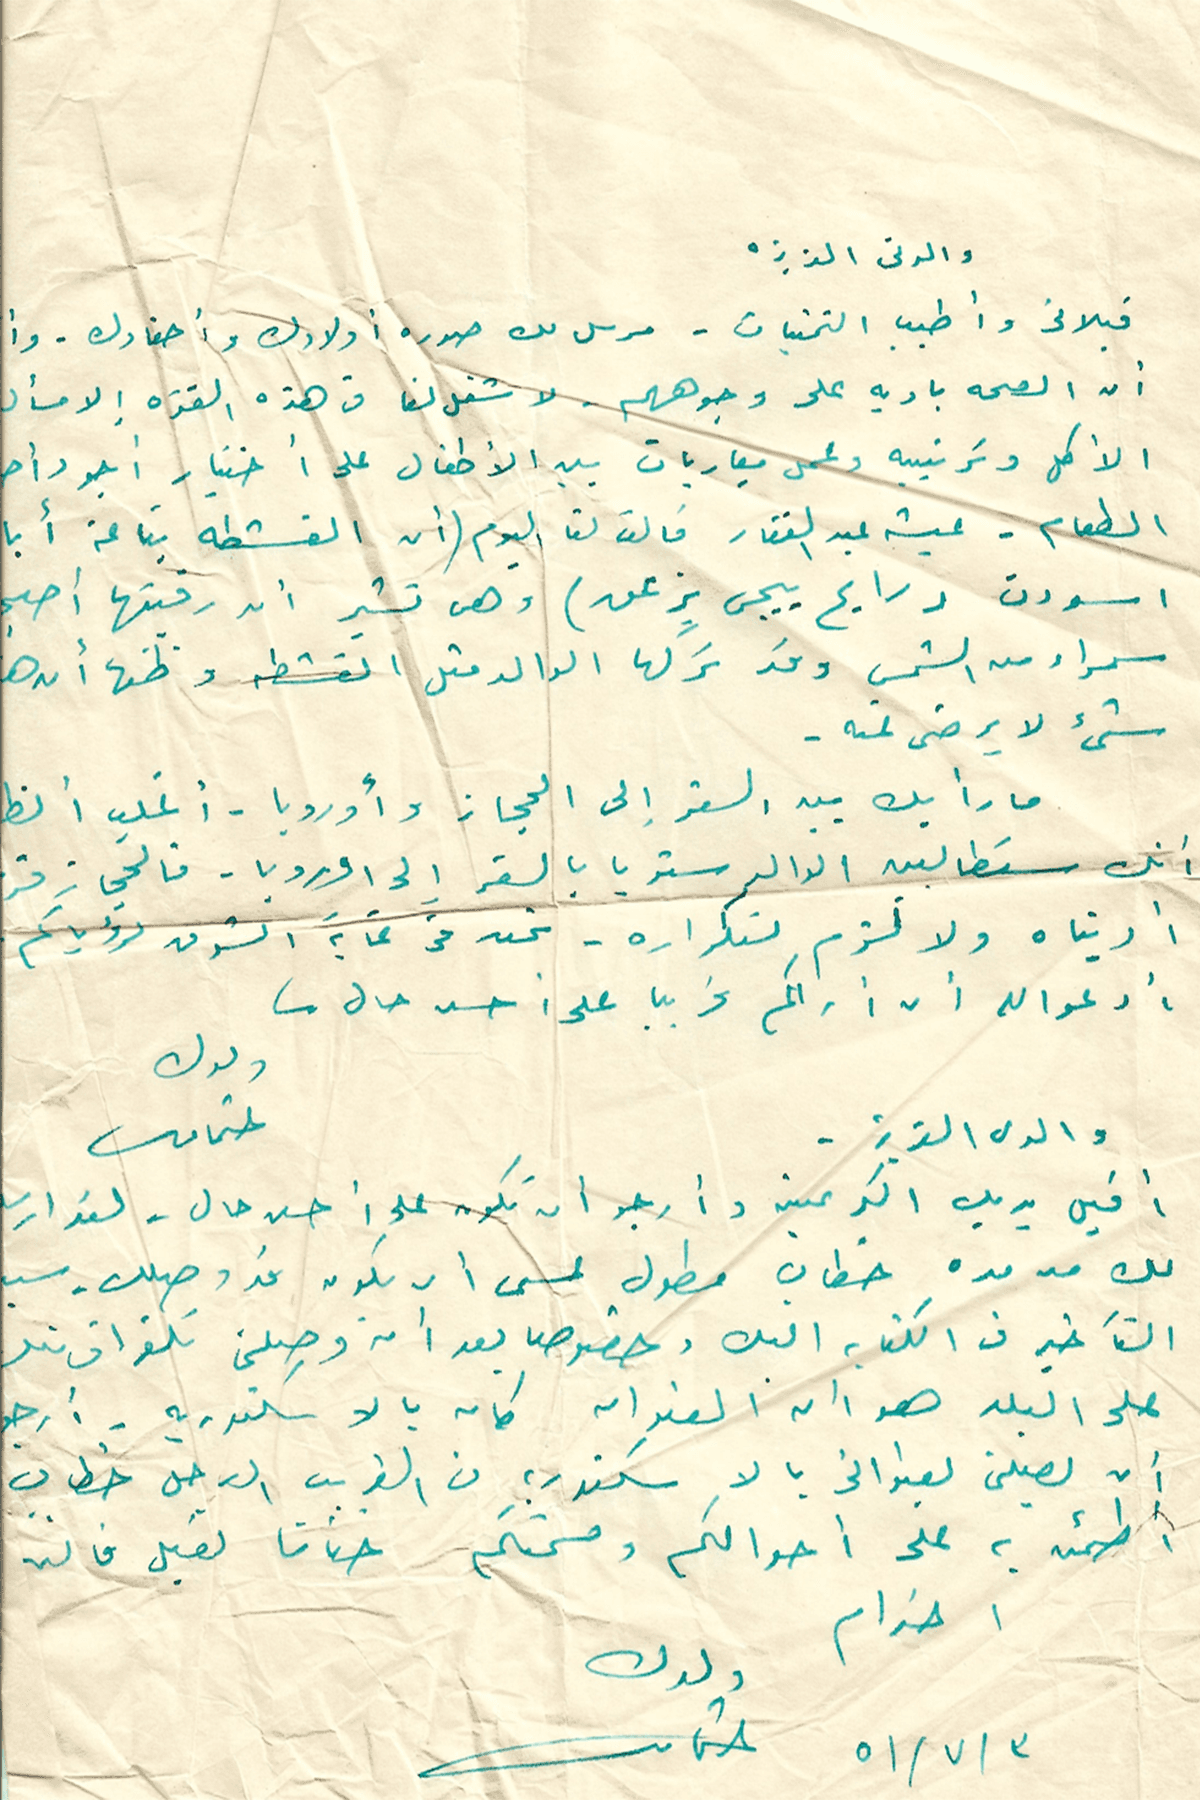 والدتى العزيزه
قبلاتى وأطيب التمنيات - مرسل لك صوره أولادك وأحفادك - وأ
أن الصحه باديه على وجوههم - لا شغل لنا فى هذه الفتره إلا مسأل
الأكل وترتيبه وعمل مباريات بين الأطفال على أختيار أجود وأحـ
الطعام - عيشه عبد الغفار قالت لنا اليوم (أن القشطه بتاعة أبا
اسودت ورايح ييجى يزعق) وهى تشير أن رقبتها أصبحـ
سمراء من الشمس وقد تركها الوالد مثل القشطه وظنها أن هـ
شئ لا يرضى عنه -
ما رأيك بين السفر إلى الحجاز وأوروبا - أغلب الظـ
أنك ستطالبين الوالد سنويا بالسفر إلى اوروبا - فالحجاز
أديناه ولا لزوم لتكراره - نحن فى غاية الشوق لرؤياكم
أدعو الله أن أراكم قريبا على أحسن حال
ولدك
عثمان
والدى العزيز -
أقبل يديك الكريمتين وأرجو أن تكون على أحسن حال - لقد ارسـ
لك من مده خطاب مطول عسى أن يكون قد وصلك - سبـ
التأخير فى الكتابه اليك وخصوصا بعد أن وصلنى تلغرافى
على البلد هو أن العنوان كان بالاسكندريه - أرجو
أن يصلنى بعنوانى بالاسكندريه فى القريب العاجل خطاب
أطمئن به على أحوالكم وصحتكم ختاما تقبل فائق
احترام
ولدك
عثمان
٣/٧/٥١